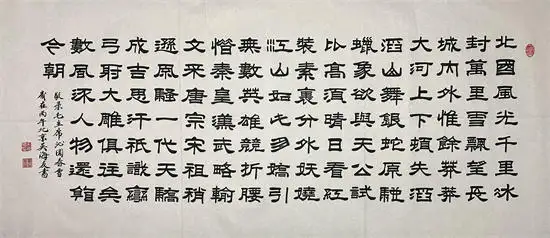 北國風光千里冰
封萬里雪飄望長
城內外惟餘莽莽
大河上下頓失滔
滔山舞銀蛇原馳
蠟象欲與天公試
比高須晴日看紅
裝素裹分外妖嬈
江山如此多嬌引
無數英雄競折腰
惜秦皇漢武略輸
文采唐宗宋祖稍
遜風騷一代天驕
成吉思汗祇識彎
弓射大雕俱往矣
數風流人物還看
今朝
敬录毛主席沁园春雪